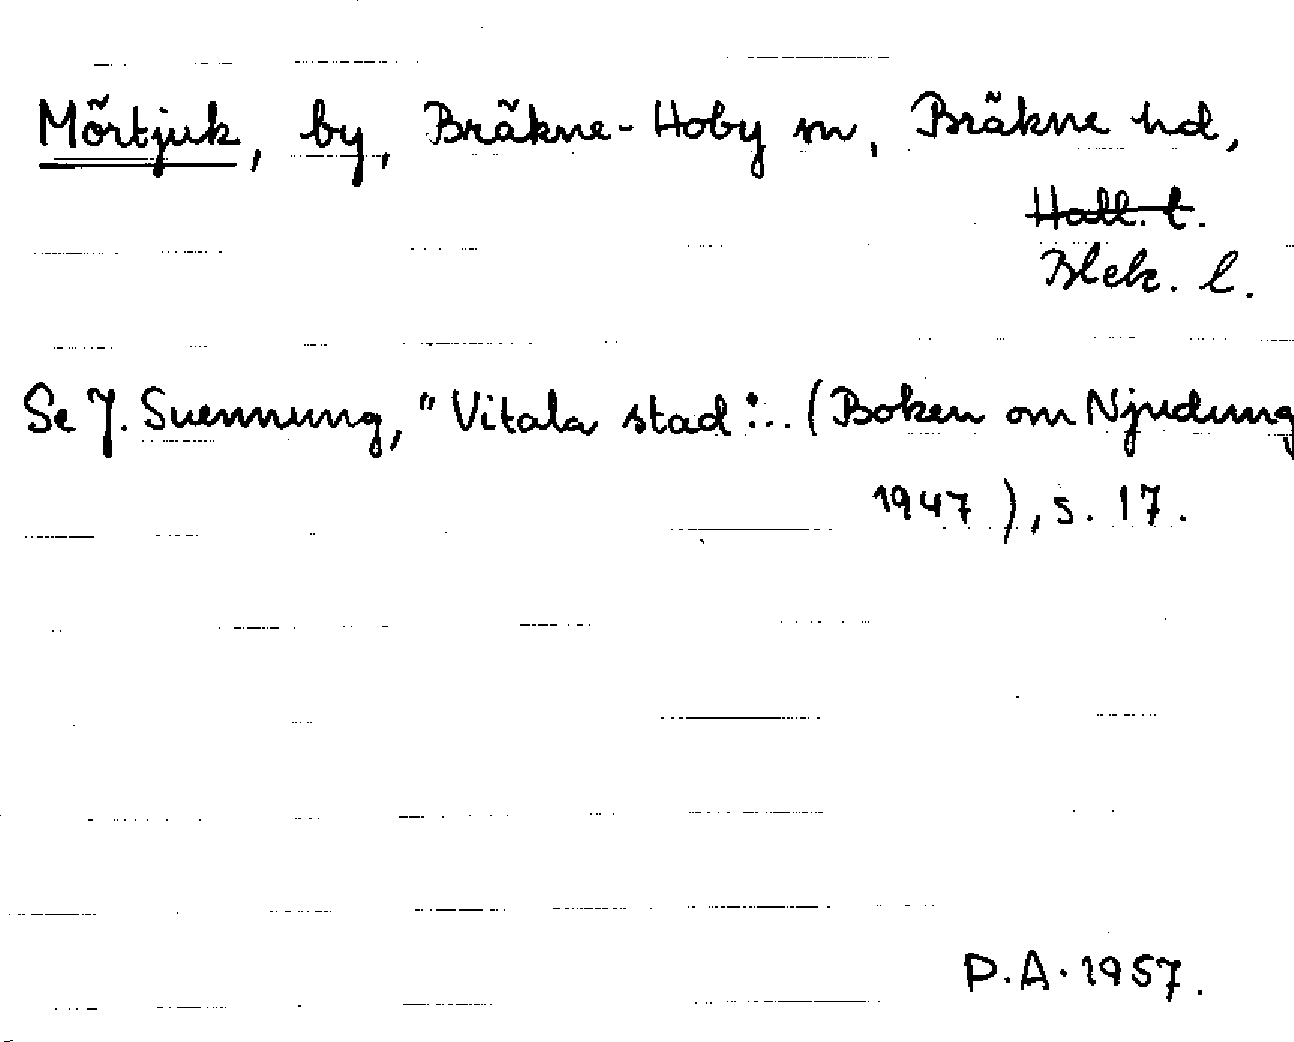 Mörtjuk, by, Bräkne-Hoby sn, Bräkne hd,
Hall. l.
Blek. l.
Se J. Svennung, "Vitala stad"... (Boken om Njudung
1947), s. 17.
P.A. 1957.